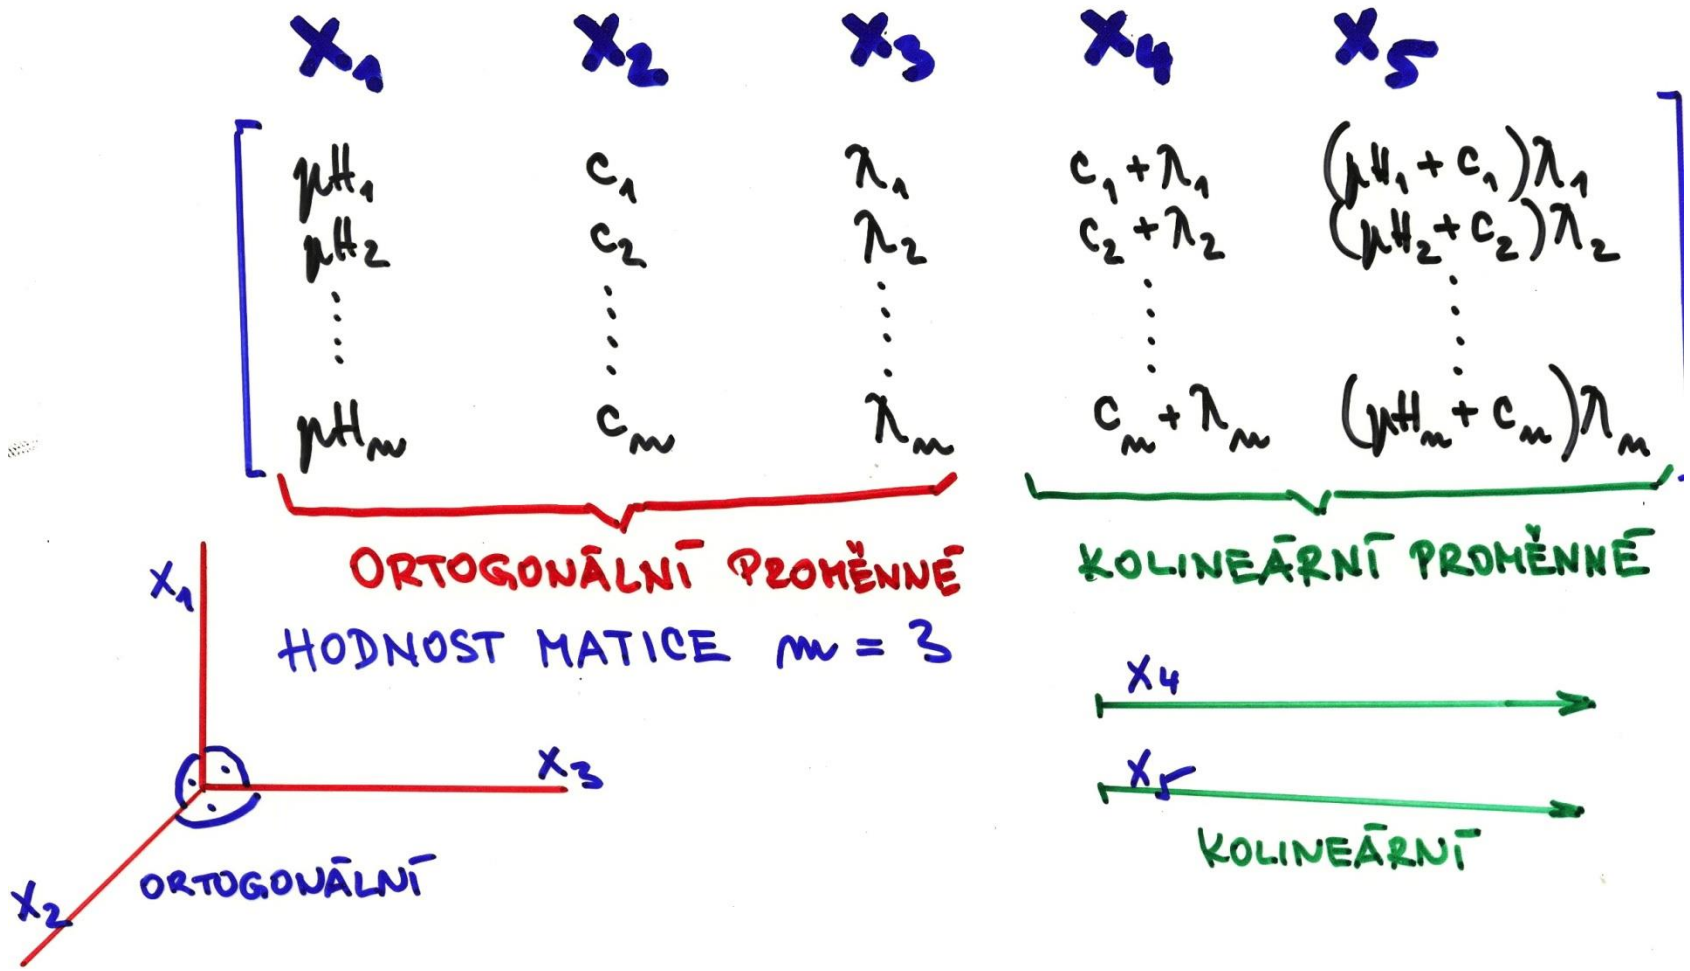 x₁ x₂ x₃ x₄ x₅
pH₁ c₁ λ₁ c₁+λ₁ (pH₁+c₁)λ₁
pH₂ c₂ λ₂ c₂+λ₂ (pH₂+c₂)λ₂
pHₙ cₙ λₙ cₙ+λₙ (pHₙ+cₙ)λₙ
ORTOGONÁLNÍ PROMĚNNÉ
KOLINEÁRNÍ PROMĚNNÉ
HODNOST MATICE m = 3
x₁
x₃
x₂
ORTOGONÁLNÍ
x₄
x₅
KOLINEÁRNÍ